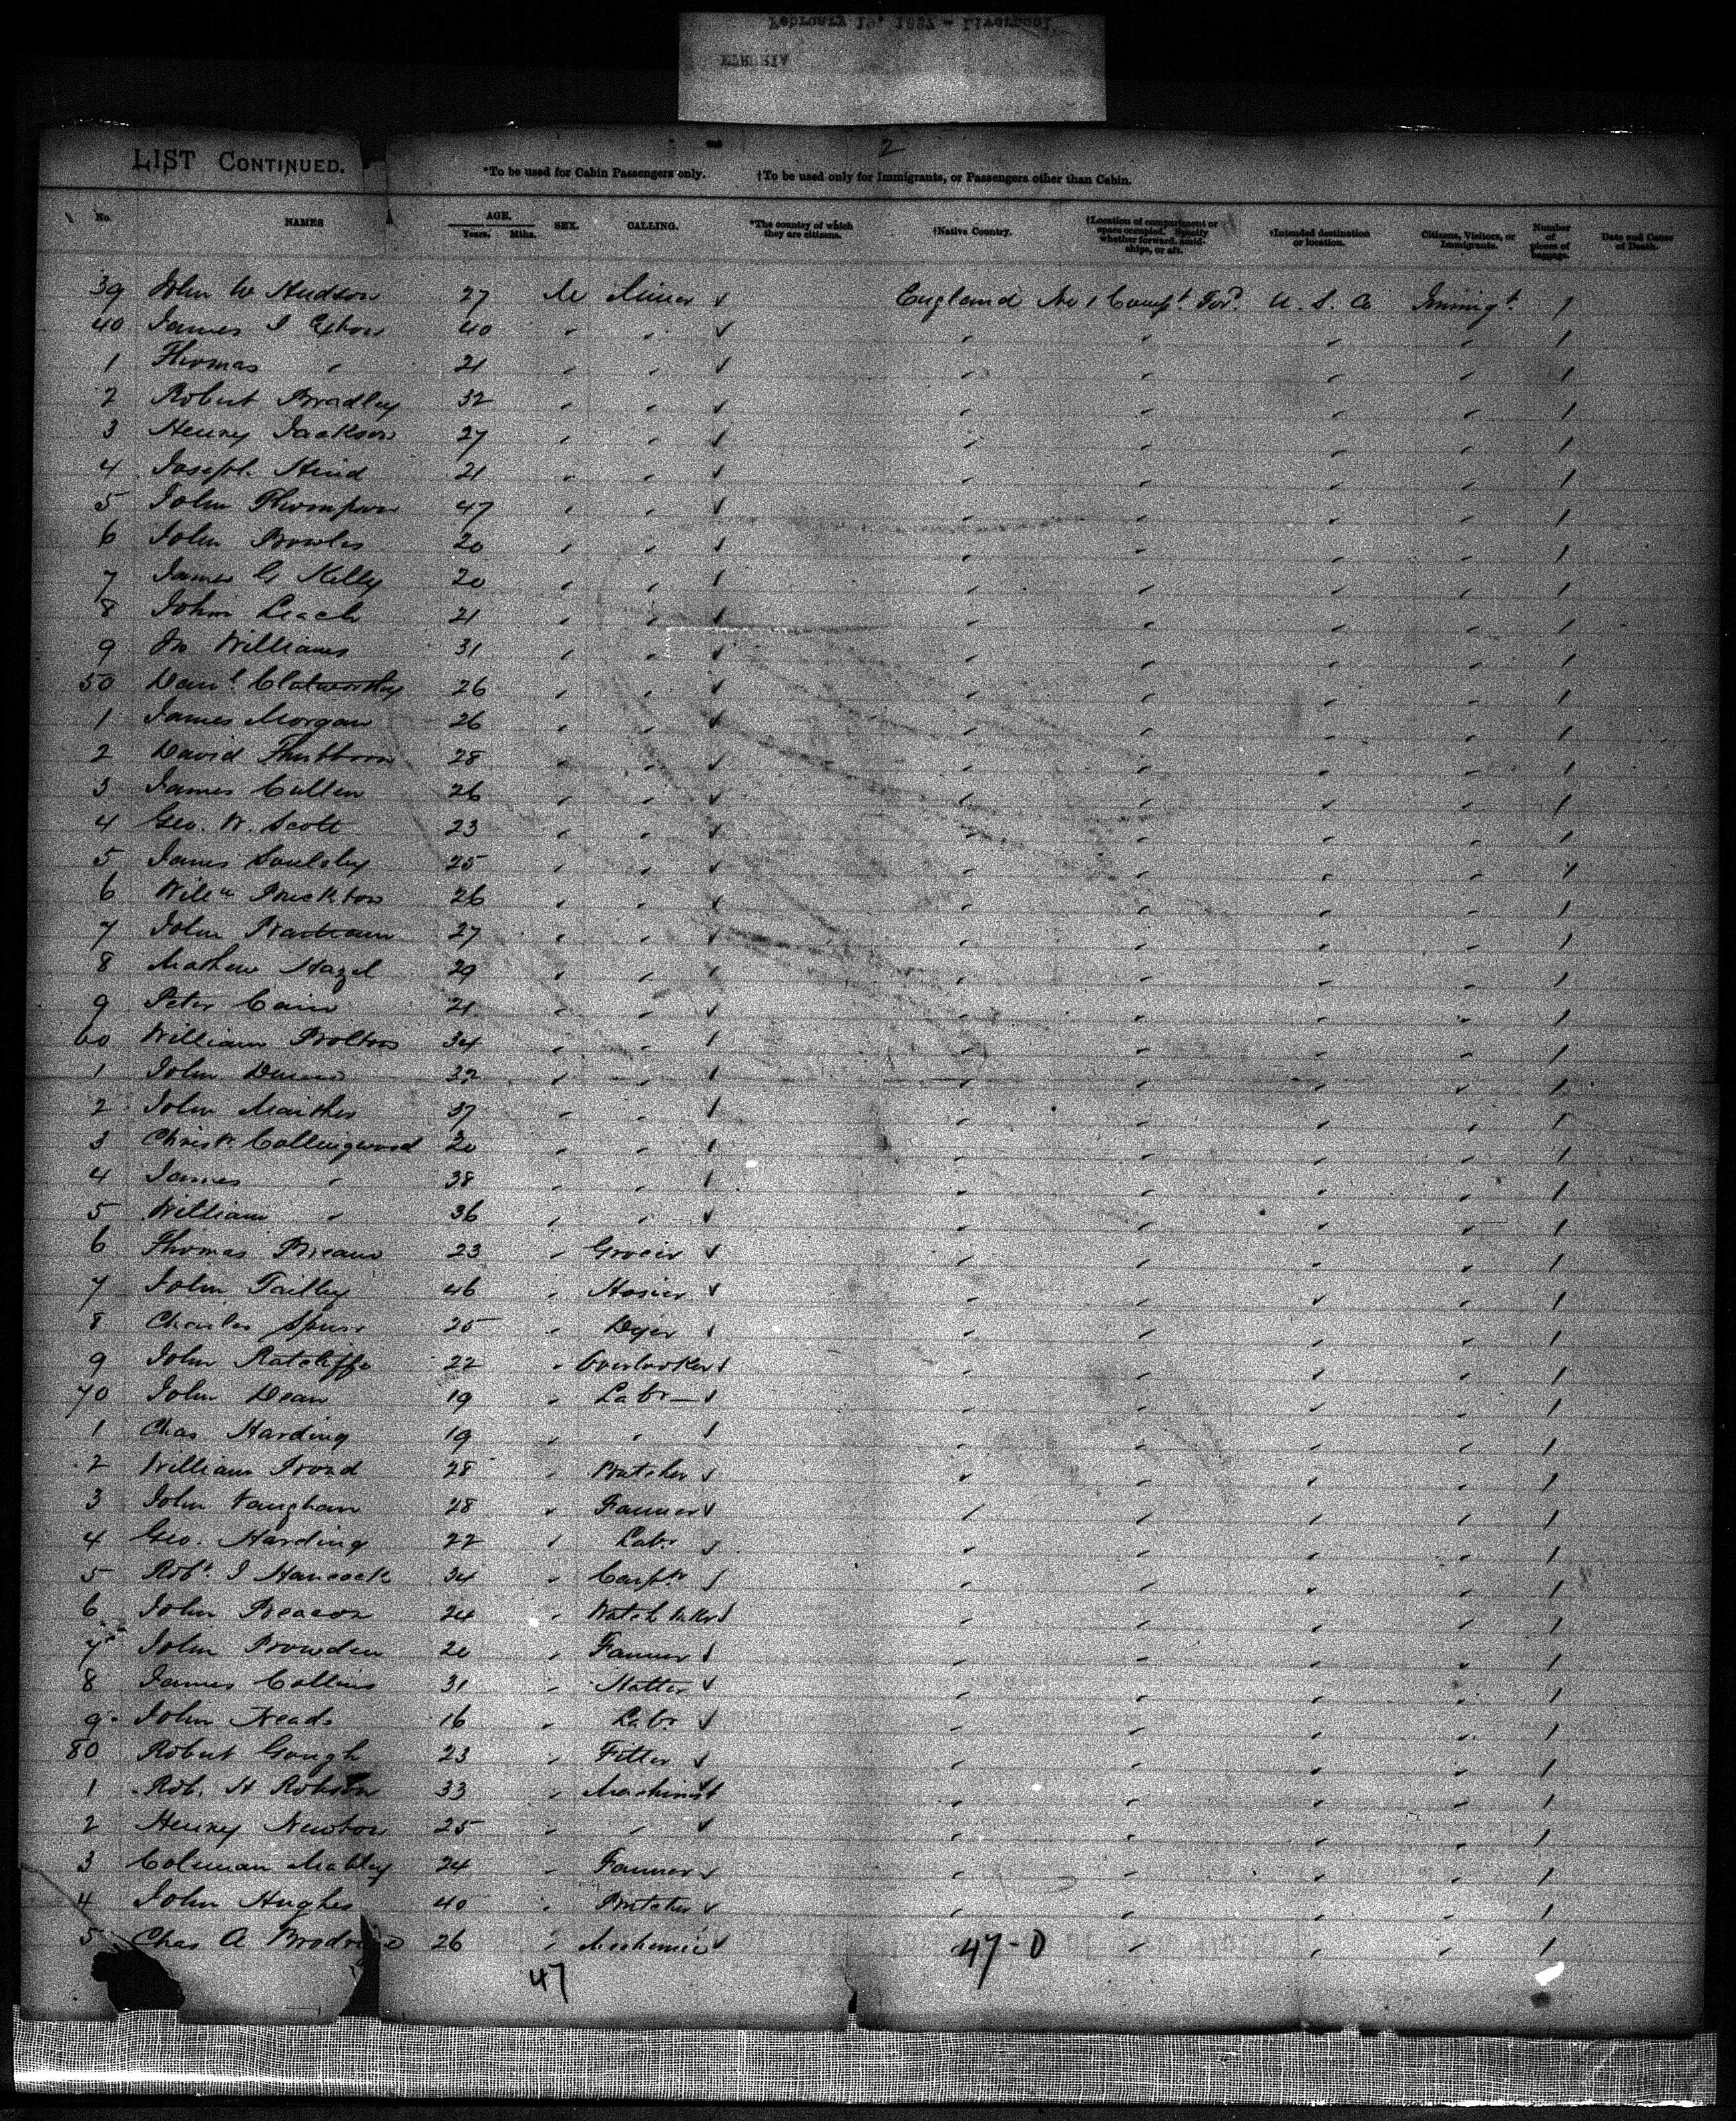 February 19, 1887 - Liverpool
ETRURIA
2
LIST CONTINUED.
*To be used for Cabin Passengers only. †To be used only for Immigrants, or Passengers other than Cabin.
No. NAMES AGE. Years. Mths. SEX. CALLING. *The country of which they are citizens. †Native Country. †Location of compartment or space occupied. Specify whether forward, amidships, or aft. †Intended destination or location. Citizens, Visitors, or Immigrants. Number of pieces of baggage. Date and Cause of Death.
39 John W Hudson 27 M Miner England No 1 Compt. Ford. U. S. A Immigt. 1
40 James I 40 " " " " " " 1
1 Thomas " 21 " " " " " " 1
2 Robert Bradley 32 " " " " " " 1
3 Henry Jackson 27 " " " " " " 1
4 Joseph Hind 21 " " " " " " 1
5 John Thompson 47 " " " " " " 1
6 John Bowles 20 " " " " " " 1
7 James G Kelly 20 " " " " " " 1
8 John Leach 21 " " " " " " 1
9 Jno Williams 31 " " " " " " 1
50 Danl. Clatworthy 26 " " " " " " 1
1 James Morgan 26 " " " " " " 1
2 David 28 " " " " " " 1
3 James Cullen 26 " " " " " " 1
4 Geo. W. Scott 23 " " " " " " 1
5 James Soulsby 25 " " " " " " 1
6 Willm 26 " " " " " " 1
7 John 27 " " " " " " 1
8 Mathew Hazel 29 " " " " " " 1
9 Peter Cain 21 " " " " " " 1
60 William Bolton 34 " " " " " " 1
1 John 32 " " " " " " 1
2 John 37 " " " " " " 1
3 Christr. Collingwood 20 " " " " " " 1
4 James " 38 " " " " " " 1
5 William " 36 " " " " " " 1
6 Thomas 23 " Grocer " " " " 1
7 John Tailby 46 " Hosier " " " " 1
8 Charles 25 " Dyer " " " " 1
9 John Ratcliffe 22 " Overlooker " " " " 1
70 John Dean 19 " Labr " " " " 1
1 Chas Harding 19 " " " " " " 1
2 William 28 " Butcher " " " " 1
3 John Vaughan 28 " Farmer " " " " 1
4 Geo. Harding 22 " Labr " " " " 1
5 Robt. I Hancock 34 " Carptr " " " " 1
6 John Beacon 24 " Watch Mkr " " " " 1
7 John Bowden 20 " Farmer " " " " 1
8 James Collins 31 " Hatter " " " " 1
9 John Neads 16 " Labr " " " " 1
80 Robert Gough 23 " Fitter " " " " 1
1 Rob. H Robson 33 " Machinist " " " " 1
2 Henry Newton 25 " " " " " " 1
3 Coleman Mabley 24 " Farmer " " " " 1
4 John Hughes 40 " Butcher " " " " 1
5 Chas A 26 " Mechanic " " " 1
47-0
47